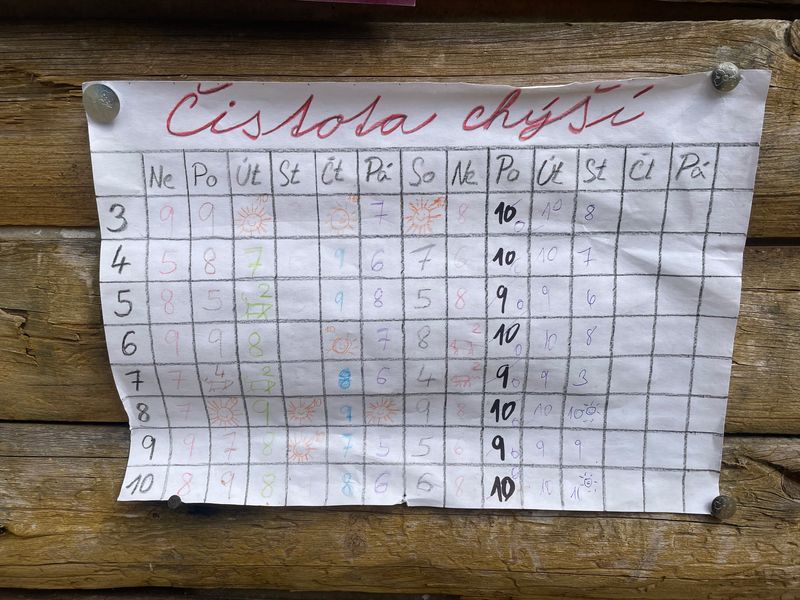 Čistota chýší
Ne Po Út St Čt Pá So Ne Po Út St Čt Pá
3 9 9 7 8 10 10 8
4 5 8 7 9 6 7 6 10 10 7
5 8 5 2 9 8 5 8 9 9 6
6 9 9 8 7 8 2 10 10 8
7 7 4 2 8 6 4 2 9 9 3
8 7 9 9 9 8 10 10 10
9 9 7 8 7 5 5 6 9 9 9
10 8 9 8 8 6 6 8 10 10